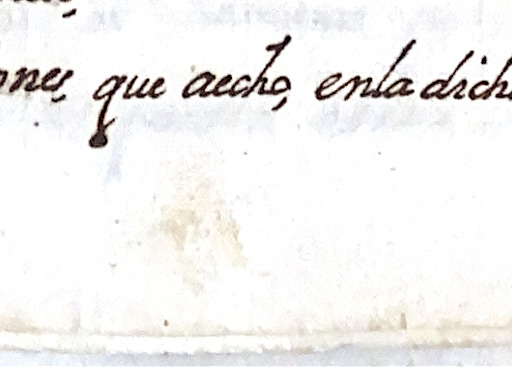 ones, que aecho, enla dich